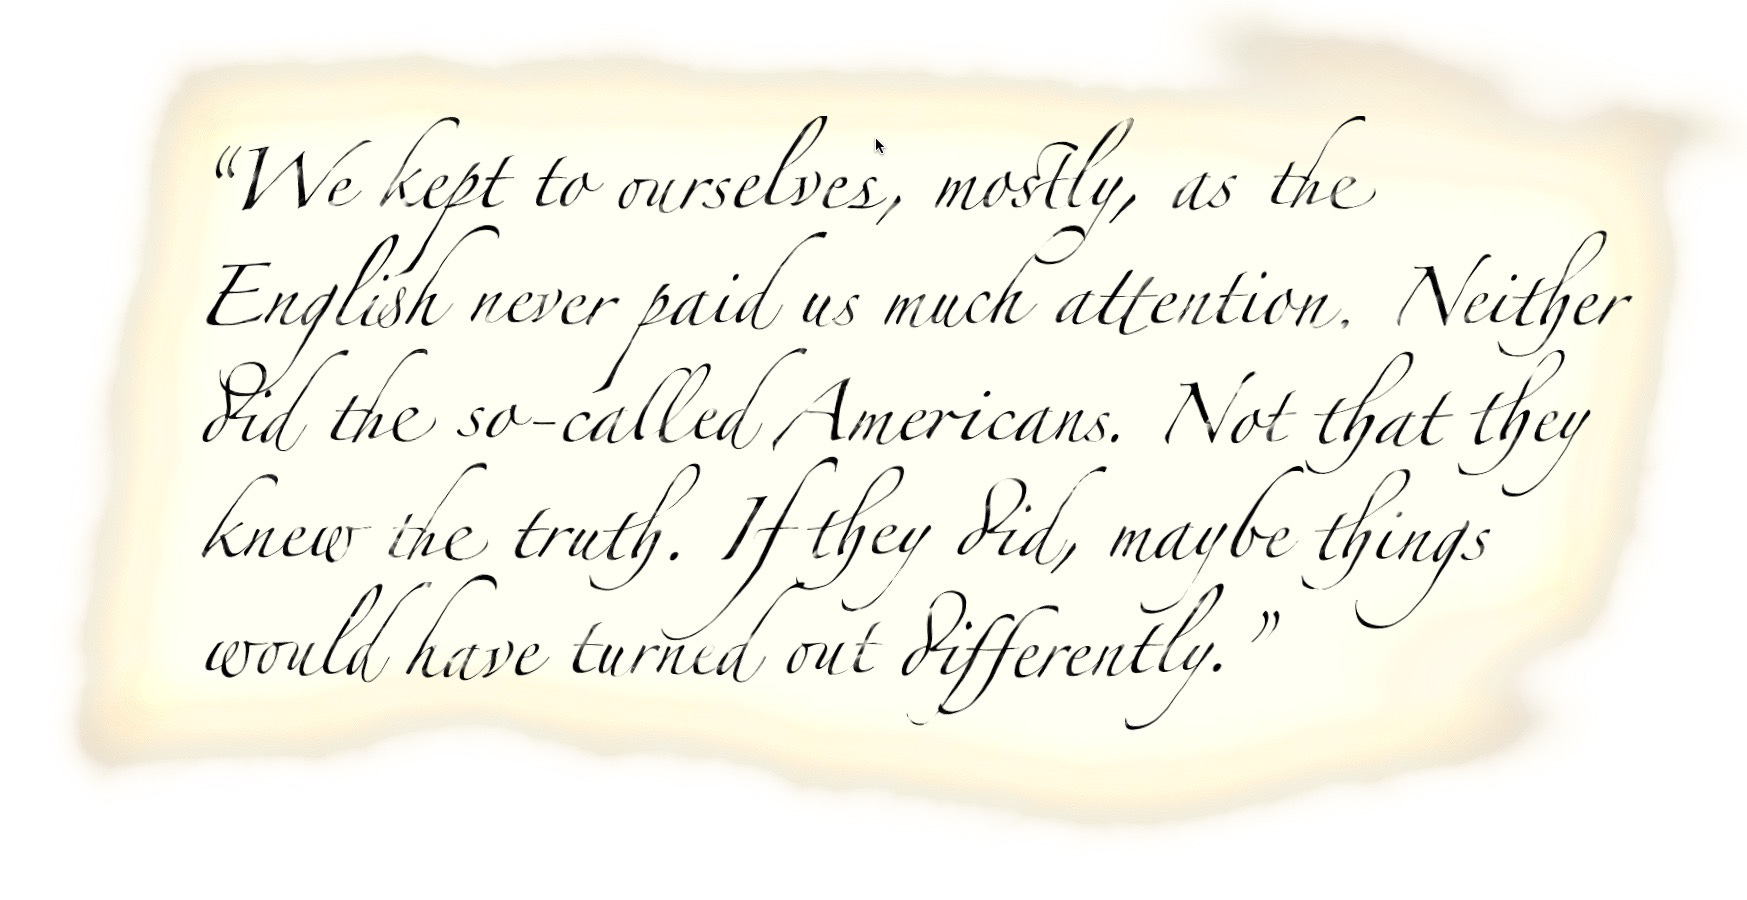 “We kept to ourselves, mostly, as the
English never paid us much attention. Neither
did the so-called Americans. Not that they
knew the truth. If they did, maybe things
would have turned out differently.”